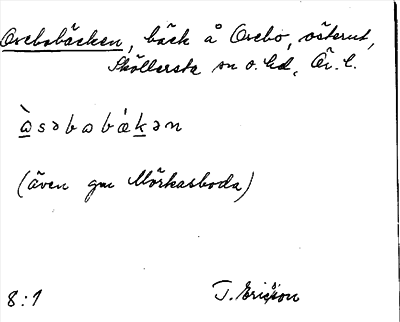 Osebobäcken, bäck å Osebo, österut,
Sköllersta sn o. hd, Ör. l.
ὰsəbobákən
(även gm Mörkasboda)
8:1
T. Ericsson